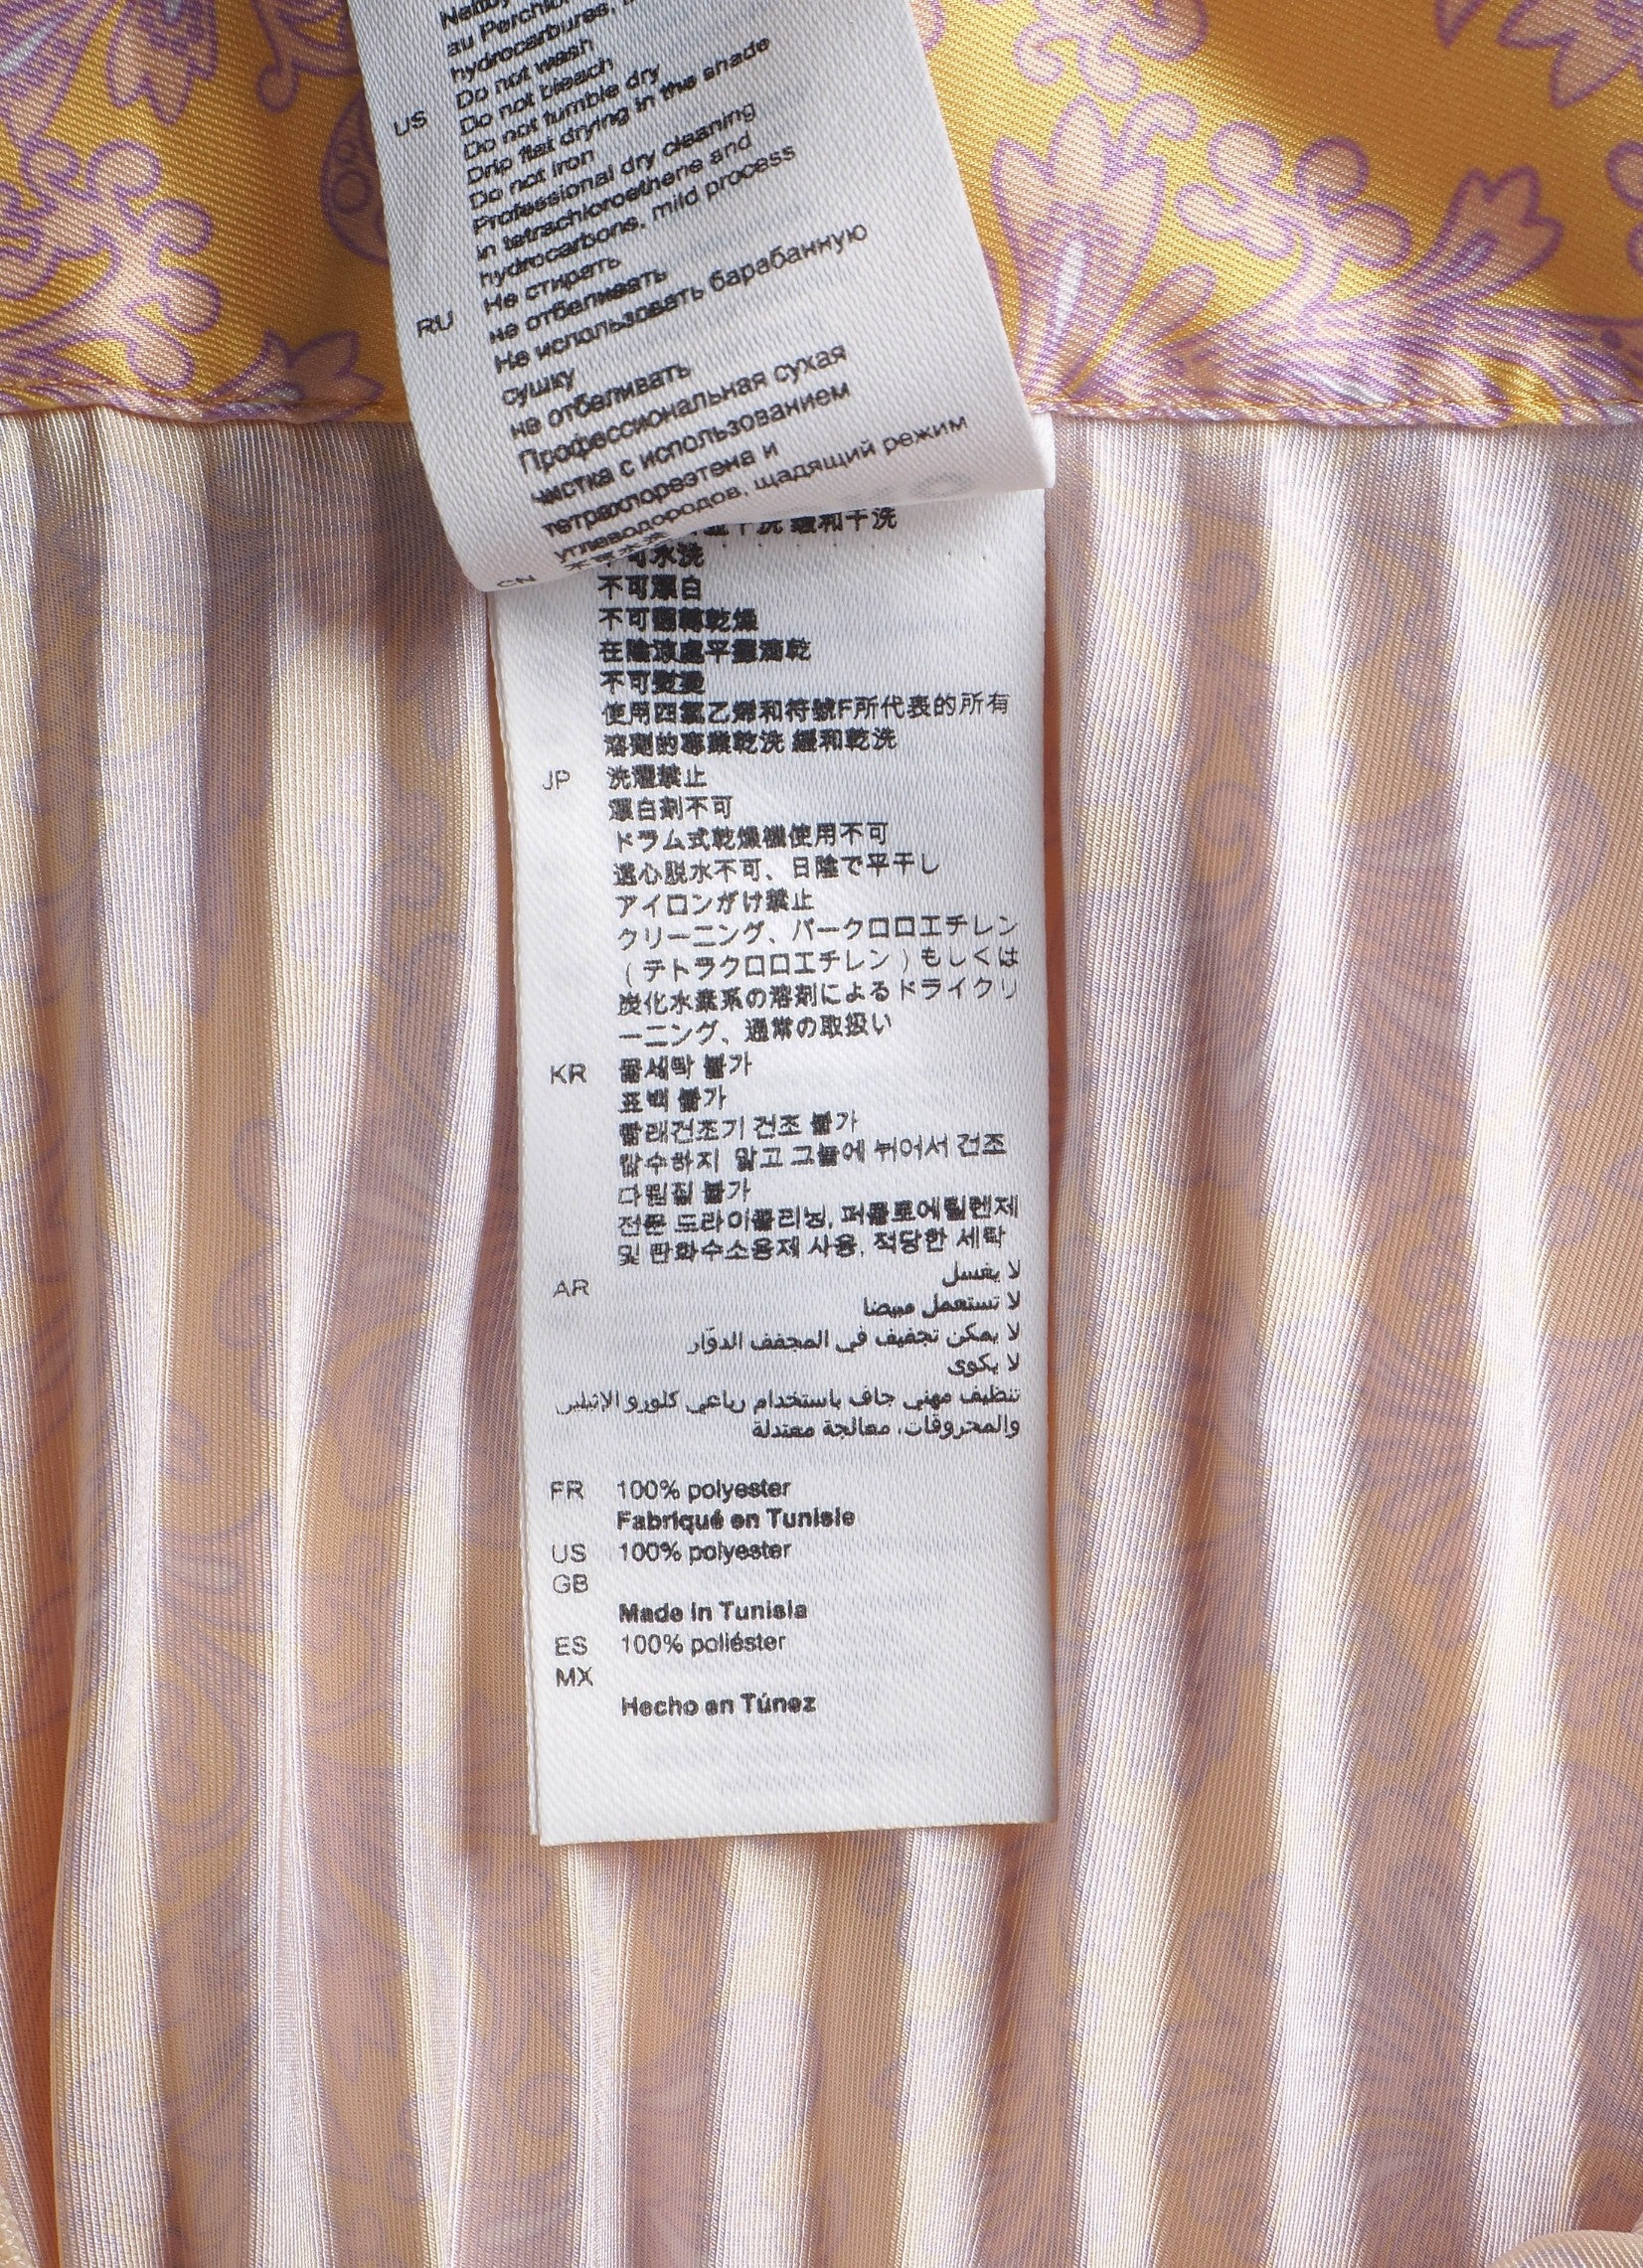 au Perchlo
hydrocarbures,
US Do not wash
Do not bleach
Do not tumble dry
Drip flat drying in the shade
Do not iron
Professional dry cleaning
in tetrachloroethene and
hydrocarbons, mild process
RU Не стирать
не отбеливать
Не использовать барабанную
сушку
не отбеливать
Профессиональная сухая
чистка с использованием
тетрахлорэтена и
углеводородов, щадящий режим
CN 不可水洗
干洗 緩和干洗
不可水洗
不可漂白
不可翻轉乾燥
在陰涼處平攤滴乾
不可熨燙
使用四氯乙烯和符號F所代表的所有
溶劑的專業乾洗 緩和乾洗
JP 洗濯禁止
漂白剤不可
ドラム式乾燥機使用不可
遠心脱水不可、日陰で平干し
アイロンがけ禁止
クリーニング、パークロロエチレン
(テトラクロロエチレン)もしくは
炭化水素系の溶剤によるドライクリ
ーニング、通常の取扱い
KR 물세탁 불가
표백 불가
빨래건조기 건조 불가
탈수하지 말고 그늘에 뉘어서 건조
다림질 불가
전문 드라이클리닝, 퍼클로에틸렌제
및 탄화수소용제 사용, 적당한 세탁
AR لا يغسل
لا تستعمل مبيضا
لا يمكن تجفيف في المجفف الدوّار
لا يكوى
تنظيف مهني جاف باستخدام رباعي كلورو الإثيلين
والمحروقات، معالجة معتدلة
FR 100% polyester
Fabriqué en Tunisie
US 100% polyester
GB
Made in Tunisia
ES 100% poliéster
MX
Hecho en Túnez